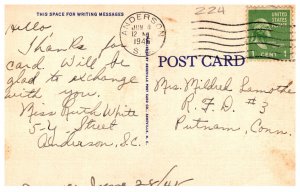 THIS SPACE FOR WRITING MESSAGES
224
ANDERSON
JUN 4
12 M
194
S.C.
1¢ 1¢
POST CARD
Hello
Thanks for
card. Will be
glad to exchange
with you.
Miss Ruth White
Street
Anderson, S.C.
Mrs. Mildred
R.F.D. #3
Putnam, Conn.